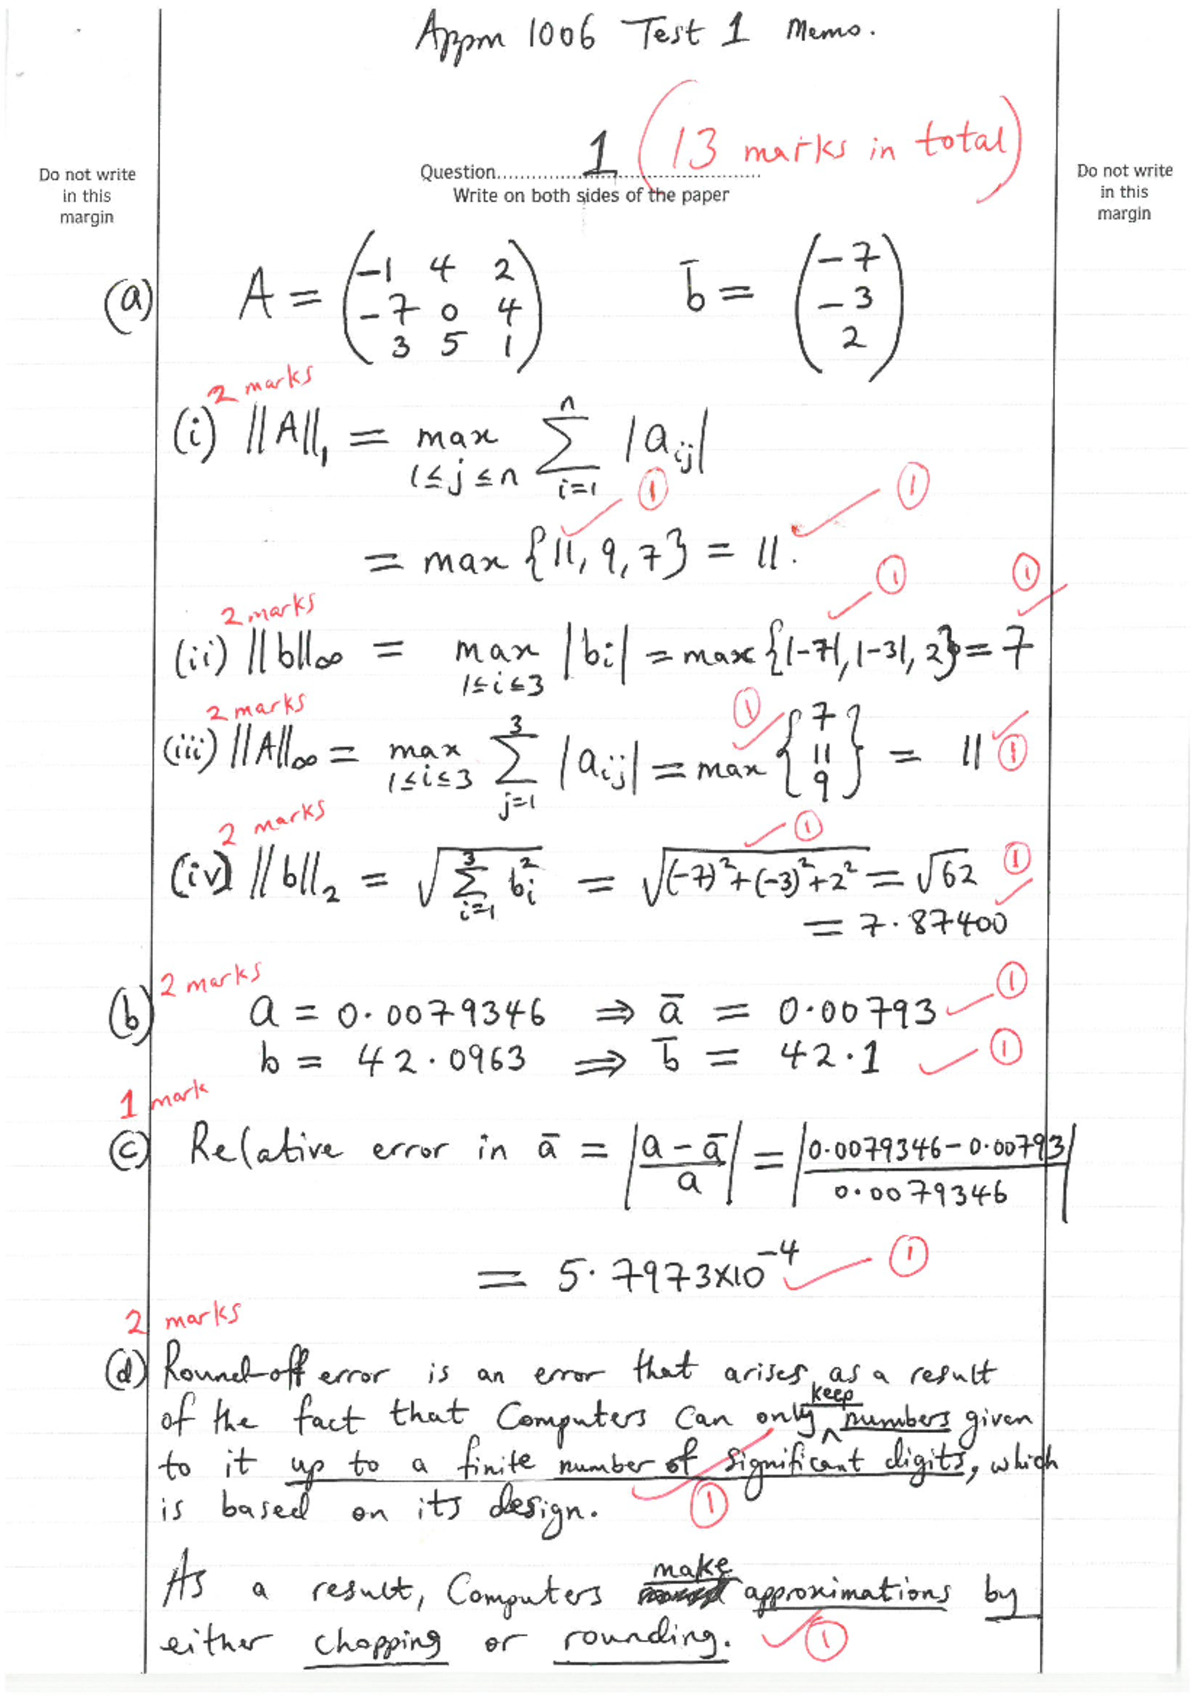 Appm 1006 Test 1 Memo.
(13 marks in total)
Question.......... 1 ..........
Write on both sides of the paper
Do not write
in this
margin
Do not write
in this
margin
(a) A = (-1 4 2; -7 0 4; 3 5 1) b̄ = (-7; -3; 2)
2 marks
(i) ||A||₁ = max 1≤j≤n ∑ i=1 n |aᵢⱼ|
= max {11, 9, 7} = 11. ① ①
2 marks
(ii) ||b||∞ = max 1≤i≤3 |bi| = max{|-7|, |-3|, 2} = 7 ① ①
2 marks
(iii) ||A||∞ = max 1≤i≤3 ∑ j=1 3 |aij| = max {7 11 9} = 11 ① ①
2 marks
(iv) ||b||₂ = √(∑ i=1 3 bi²) = √((-7)²+(-3)²+2²) = √62 ① ①
= 7.87400
2 marks
(b) a = 0.0079346 ⇒ ā = 0.00793 ①
b = 42.0963 ⇒ b̄ = 42.1 ①
1 mark
(c) Relative error in ā = |(a - ā)/a| = |(0.0079346-0.00793)/0.0079346|
= 5.7973x10⁻⁴ ①
2 marks
(d) Round-off error is an error that arises as a result
of the fact that Computers can only keep numbers given
to it up to a finite number of significant digits, which
is based on its design. ①
As a result, Computers make approximations by
either chopping or rounding. ①